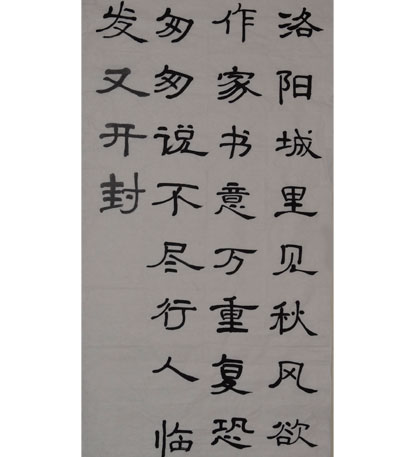 洛阳城里见秋风欲
作家书意万重复恐
匆匆说不尽行人临
发又开封